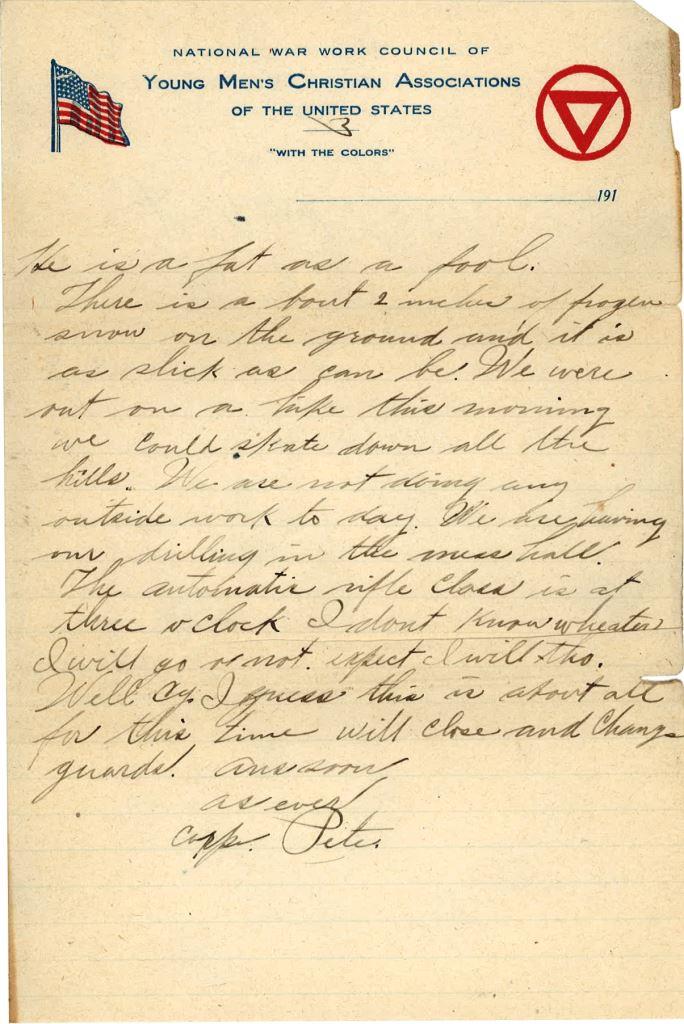 NATIONAL WAR WORK COUNCIL OF
YOUNG MEN'S CHRISTIAN ASSOCIATIONS
OF THE UNITED STATES
3
"WITH THE COLORS"
191
He is a fat as a fool.
There is a bout 2 inches of frozen
snow on the ground and it is
as slick as can be. We were
out on a hike this morning
we could skate down all the
hills. We are not doing any
outside work to day. We are having
our drilling in the mess hall.
The automatic rifle class is at
three o clock I dont know wheater
I will go or not. expect I will tho.
Well Cy. I guess this is about all
for this time will close and change
guards. Ans soon
as ever
Corp. Pete.